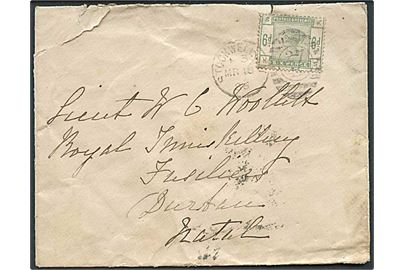 6d 6d
MR 16
Lieut W C Woollett
Royal Inniskilling
Fusiliers
Durban
Natal